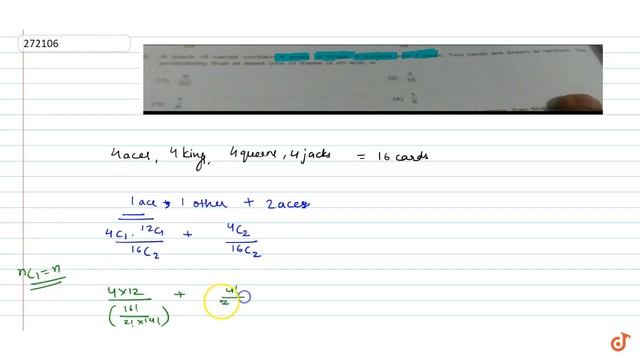 272106
A pack of cards contains 4 aces, 4 kings, 4 queens and 4 jacks. Two cards are drawn at random. The
probability that at least one of these is an ace, is
(1) 9/20 (2) 3/16
(3) 1/6 (4) 1/9
4 aces, 4 king, 4 queens, 4 jacks = 16 cards
1 ace, 1 other + 2 aces
4C₁ · 12C₁ / 16C₂ + 4C₂ / 16C₂
nC₁ = n
4×12 / (16! / 2! × 14!) + 4! / 2
d